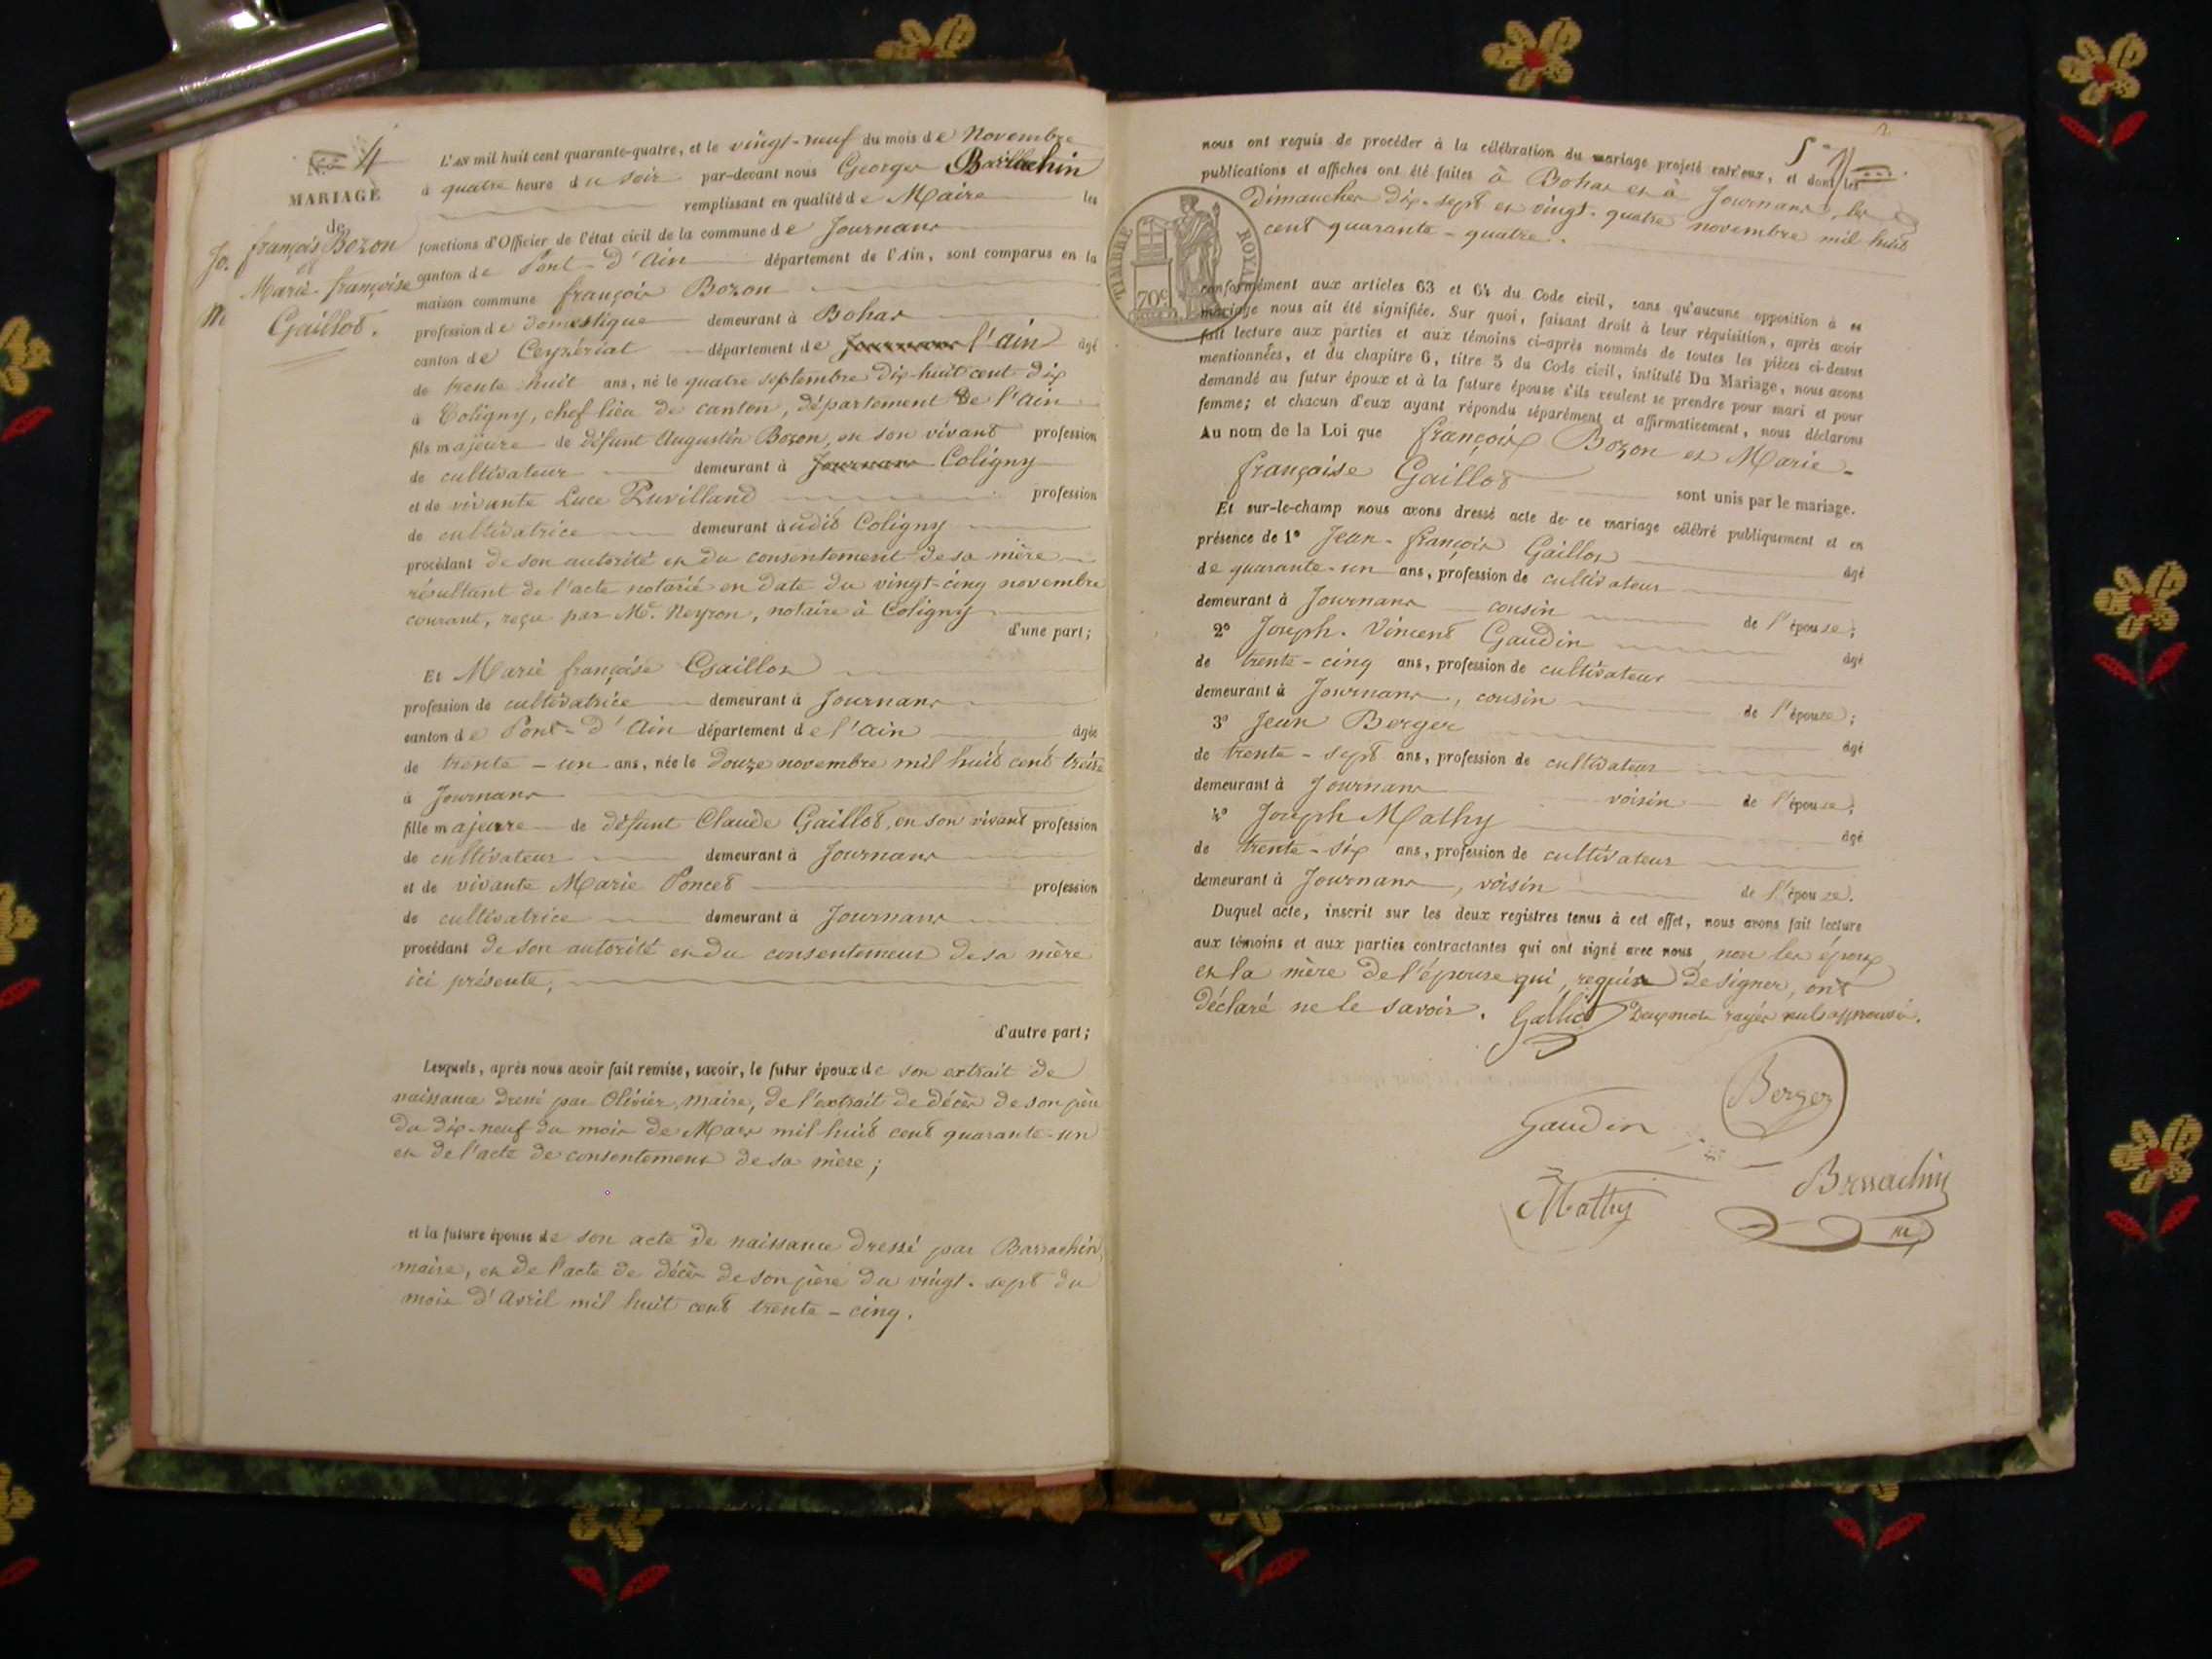 4
MARIAGE
de
françois Bozon
et
Marie-françoise
Gaillot.
L'AN mil huit cent quarante-quatre, et le vingt-neuf du mois de Novembre
à quatre heure du soir par-devant nous Georges Barrachin
remplissant en qualité de Maire les
fonctions d'Officier de l'état civil de la commune de Journans
canton de Pont-d'Ain département de l'Ain, sont comparus en la
maison commune françois Bozon
profession de domestique demeurant à Bohas
canton de Ceyzériat département de Journans l'ain âgé
de trente huit ans, né le quatre septembre dix-huit cent dix
à Coligny, chef lieu de canton, département de l'ain
fils majeure de défunt Augustin Bozon, en son vivant profession
de cultivateur demeurant à Journans Coligny
et de vivante Luce Puvilland profession
de cultivatrice demeurant audit Coligny
procédant de son autorité et du consentement de sa mère
résultant de l'acte notarié en date du vingt-cinq novembre
courant, reçu par Me. Neyron, notaire à Coligny
d'une part;
Et Marie françoise Gaillot
profession de cultivatrice demeurant à Journans
canton de Pont-d'Ain département de l'ain âgée
de trente-un ans, née le douze novembre mil huit cent treize
à Journans
fille majeure de défunt Claude Gaillot, en son vivant profession
de cultivateur demeurant à Journans
et de vivante Marie Poncet profession
de cultivatrice demeurant à Journans
procédant de son autorité et du consentement de sa mère
ici présente,
d'autre part;
Lesquels, après nous avoir fait remise, savoir, le futur époux de son extrait de
naissance dressé par Olivier, maire, de l'extrait de décès de son père
du dix-neuf du mois de Mars mil huit cent quarante-un
et de l'acte de consentement de sa mère;
et la future épouse de son acte de naissance dressé par Barrachin,
maire, et de l'acte de décès de son père du vingt-sept du
mois d'Avril mil huit cent trente-cinq.
nous ont requis de procéder à la célébration du mariage projeté entr'eux, et dont les
publications et affiches ont été faites à Bohas et à Journans, les
dimanches dix-sept et vingt-quatre novembre mil huit
cent quarante-quatre.
TIMBRE ROYAL
70c
conformément aux articles 63 et 64 du Code civil, sans qu'aucune opposition à ce
mariage nous ait été signifiée. Sur quoi, faisant droit à leur réquisition, après avoir
fait lecture aux parties et aux témoins ci-après nommés de toutes les pièces ci-dessus
mentionnées, et du chapitre 6, titre 5 du Code civil, intitulé Du Mariage, nous avons
demandé au futur époux et à la future épouse s'ils veulent se prendre pour mari et pour
femme; et chacun d'eux ayant répondu séparément et affirmativement, nous déclarons
Au nom de la Loi que françois Bozon et Marie-
françoise Gaillot
sont unis par le mariage.
Et sur-le-champ nous avons dressé acte de ce mariage célébré publiquement et en
présence de 1° Jean-françois Gaillot âgé
de quarante-un ans, profession de cultivateur
demeurant à Journans cousin de l'épouse;
2° Joseph-Vincent Gaudin âgé
de trente-cinq ans, profession de cultivateur
demeurant à Journans, cousin de l'épouse;
3° Jean Berger âgé
de trente-sept ans, profession de cultivateur
demeurant à Journans voisin de l'épouse;
4° Joseph Mathy âgé
de trente-six ans, profession de cultivateur
demeurant à Journans, voisin de l'épouse.
Duquel acte, inscrit sur les deux registres tenus à cet effet, nous avons fait lecture
aux témoins et aux parties contractantes qui ont signé avec nous, non les époux
et la mère de l'épouse qui, requis de signer, ont
déclaré ne le savoir. Deux mots rayés nuls approuvés.
Galliot
Berger
Gaudin
Mathy
Barrachin